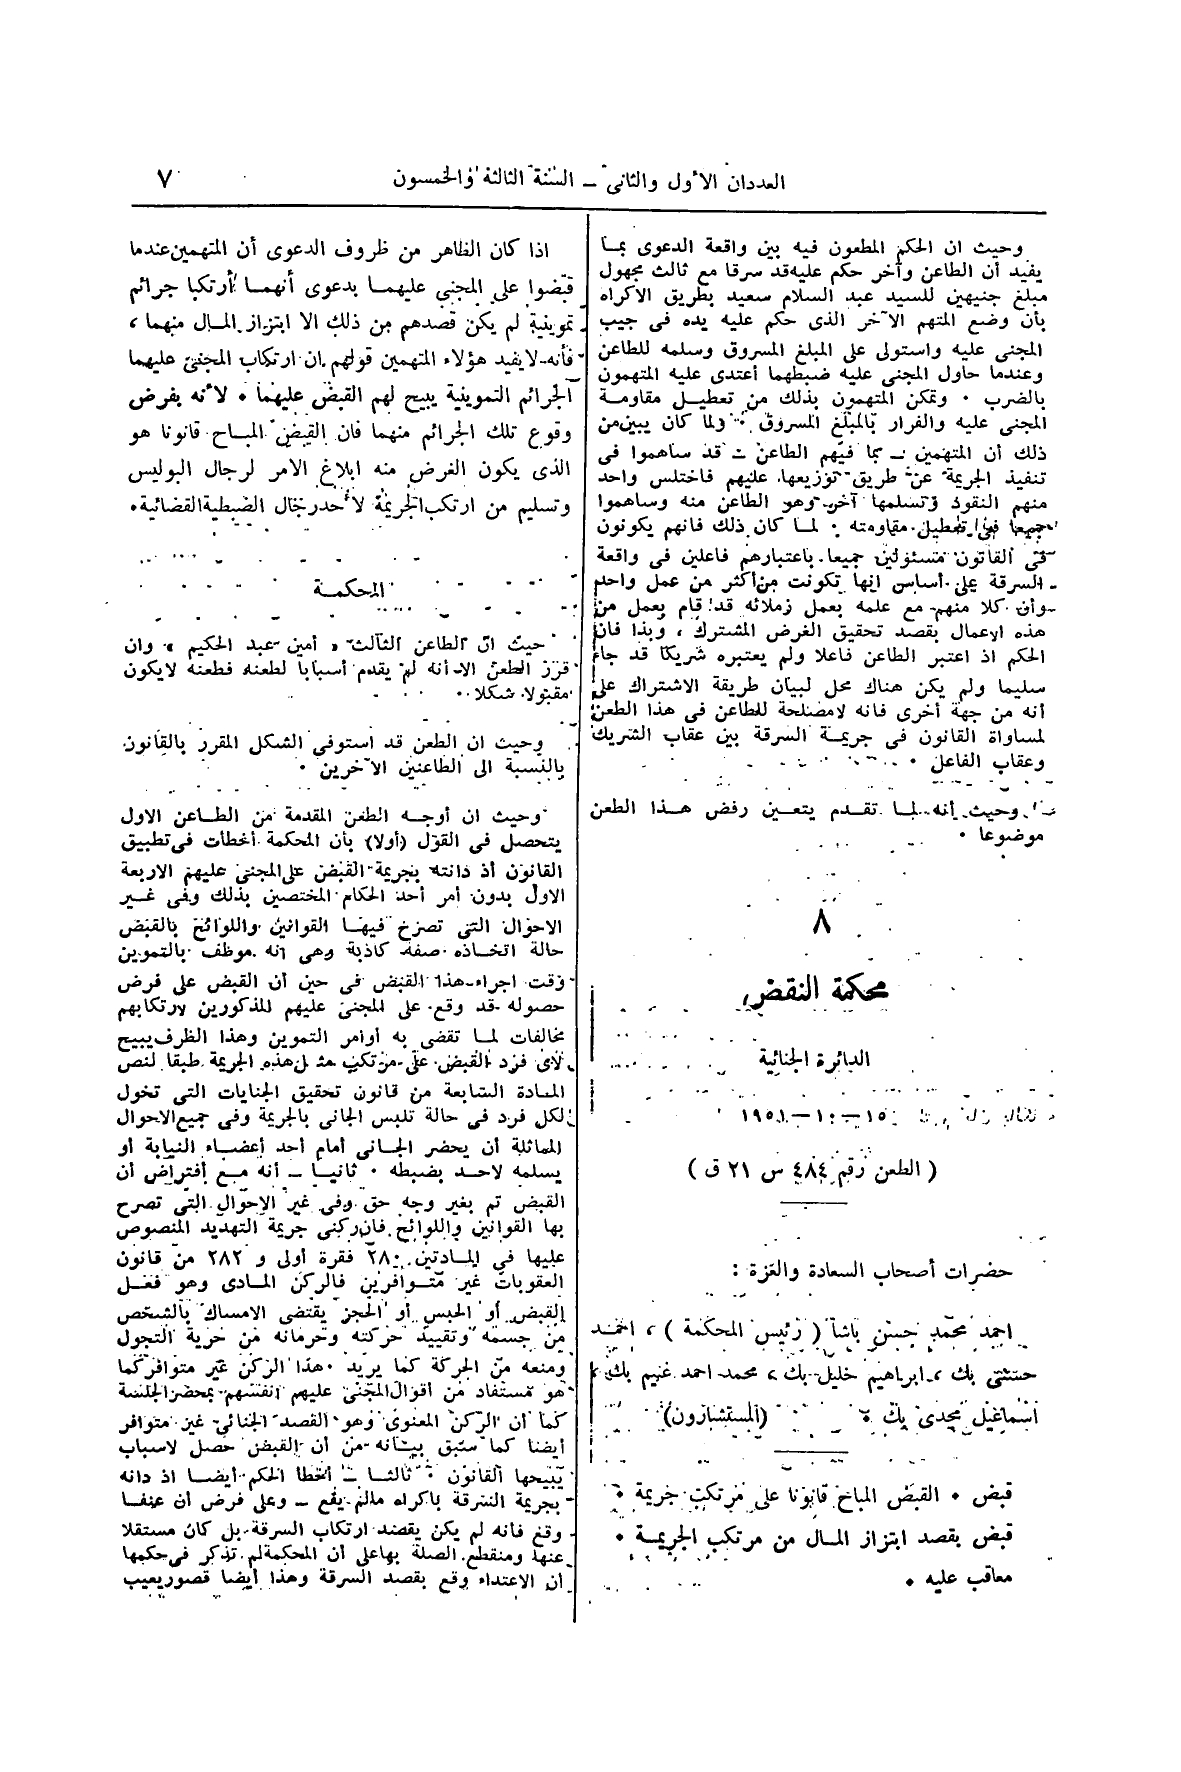 العددان الأول والثانى – السنة الثالثة والخمسون
٧
وحيث ان الحكم المطعون فيه بين واقعة الدعوى بما
يفيد أن الطاعن وآخر حكم عليه قد سرقا مع ثالث مجهول
مبلغ جنيهين للسيد عبد السلام سعيد بطريق الاكراه
بأن وضع المتهم الآخر الذى حكم عليه يده فى جيب
المجنى عليه واستولى على المبلغ المسروق وسلمه للطاعن
وعندما حاول المجنى عليه ضبطهما أعتدى عليه المتهمون
بالضرب • وتمكن المتهمون بذلك من تعطيل مقاومة
المجنى عليه والفرار بالمبلغ المسروق • ولما كان يبين من
ذلك أن المتهمين – بما فيهم الطاعن – قد ساهموا فى
تنفيذ الجريمة عن طريق توزيعها عليهم فاختلس واحد
منهم النقود وتسلمها آخر وهو الطاعن منه وساهموا
جميعا فى تعطيل مقاومته • لما كان ذلك فانهم يكونون
فى القانون مسئولين جميعا باعتبارهم فاعلين فى واقعة
السرقة على أساس انها تكونت من أكثر من عمل واحد
وأن كلا منهم مع علمه بعمل زملائه قد قام بعمل من
هذه الاعمال بقصد تحقيق الغرض المشترك ، وبذا فان
الحكم اذ اعتبر الطاعن فاعلا ولم يعتبره شريكا قد جاء
سليما ولم يكن هناك محل لبيان طريقة الاشتراك على
أنه من جهة أخرى فانه لا مصلحة للطاعن فى هذا الطعن
لمساواة القانون فى جريمة السرقة بين عقاب الشريك
وعقاب الفاعل •
وحيث أنه لما تقدم يتعين رفض هذا الطعن
موضوعا •
٨
محكمة النقض
الدائرة الجنائية
١٥ – ١٠ – ١٩٥١
( الطعن رقم ٤٨٤ س ٢١ ق )
حضرات أصحاب السعادة والعزة :
احمد محمد حسن باشا ( رئيس المحكمة ) ، احمد
حسنى بك ، ابراهيم خليل بك ، محمد احمد غنيم بك ،
اسماعيل مجدى بك • (المستشارون)
قبض • القبض المباح قانونا على مرتكب جريمة •
قبض بقصد ابتزاز المال من مرتكب الجريمة •
معاقب عليه •
اذا كان الظاهر من ظروف الدعوى أن المتهمين عندما
قبضوا على المجنى عليهما بدعوى أنهما أرتكبا جرائم
تموينية لم يكن قصدهم من ذلك الا ابتزاز المال منهما ،
فأنه لا يفيد هؤلاء المتهمين قولهم ان ارتكاب المجنى عليهما
الجرائم التموينية يبيح لهم القبض عليهما • لأنه بفرض
وقوع تلك الجرائم منهما فان القبض المباح قانونا هو
الذى يكون الغرض منه ابلاغ الامر لرجال البوليس
وتسليم من ارتكب الجريمة لأحد رجال الضبطية القضائية •
المحكمة
حيث ان الطاعن الثالث « أمين عبد الحكيم » وان
قرر الطعن الا أنه لم يقدم أسبابا لطعنه فطعنه لا يكون
مقبولا شكلا •
وحيث ان الطعن قد استوفى الشكل المقرر بالقانون
بالنسبة الى الطاعنين الآخرين •
وحيث ان أوجه الطعن المقدمة من الطاعن الاول
يتحصل فى القول (أولا) بأن المحكمة أخطأت فى تطبيق
القانون أذ دانته بجريمة القبض على المجنى عليهم الاربعة
الاول بدون أمر أحد الحكام المختصين بذلك وفى غير
الاحوال التى تصرح فيها القوانين واللوائح بالقبض
حالة اتخاذه صفة كاذبة وهى أنه موظف بالتموين
وقت اجراء هذا القبض فى حين أن القبض على فرض
حصوله قد وقع على المجنى عليهم المذكورين لارتكابهم
مخالفات لما تقضى به أوامر التموين وهذا الظرف يبيح
لأى فرد القبض على مرتكب مثل هذه الجريمة طبقا لنص
المادة السابعة من قانون تحقيق الجنايات التى تخول
لكل فرد فى حالة تلبس الجانى بالجريمة وفى جميع الاحوال
المماثلة أن يحضر الجانى أمام أحد أعضاء النيابة أو
يسلمه لاحد بضبطه • ثانيا – أنه مع إفتراض أن
القبض تم بغير وجه حق وفى غير الاحوال التى تصرح
بها القوانين واللوائح فان ركنى جريمة التهديد المنصوص
عليها فى المادتين ٢٨٠ فقرة أولى و ٢٨٢ من قانون
العقوبات غير متوافرين فالركن المادى وهو فعل
القبض أو الحبس أو الحجز يقتضى الامساك بالشخص
من جسمه وتقييد حركته وحرمانه من حرية التجول
ومنعه من الحركة كما يريد • هذا الركن غير متوافر كما
هو مستفاد من أقوال المجنى عليهم أنفسهم بمحضر الجلسة
كما أن الركن المعنوى وهو القصد الجنائى غير متوافر
أيضا كما سبق بيانه من أن القبض حصل لاسباب
يبيحها القانون • ثالثا – أخطأ الحكم أيضا اذ دانه
بجريمة السرقة باكراه مالم يقع – وعلى فرض أن عنفا
وقع فانه لم يكن بقصد ارتكاب السرقة بل كان مستقلا
عنها ومنقطع الصلة بها على أن المحكمة لم تذكر فى حكمها
أن الاعتداء وقع بقصد السرقة وهذا أيضا قصور يعيب